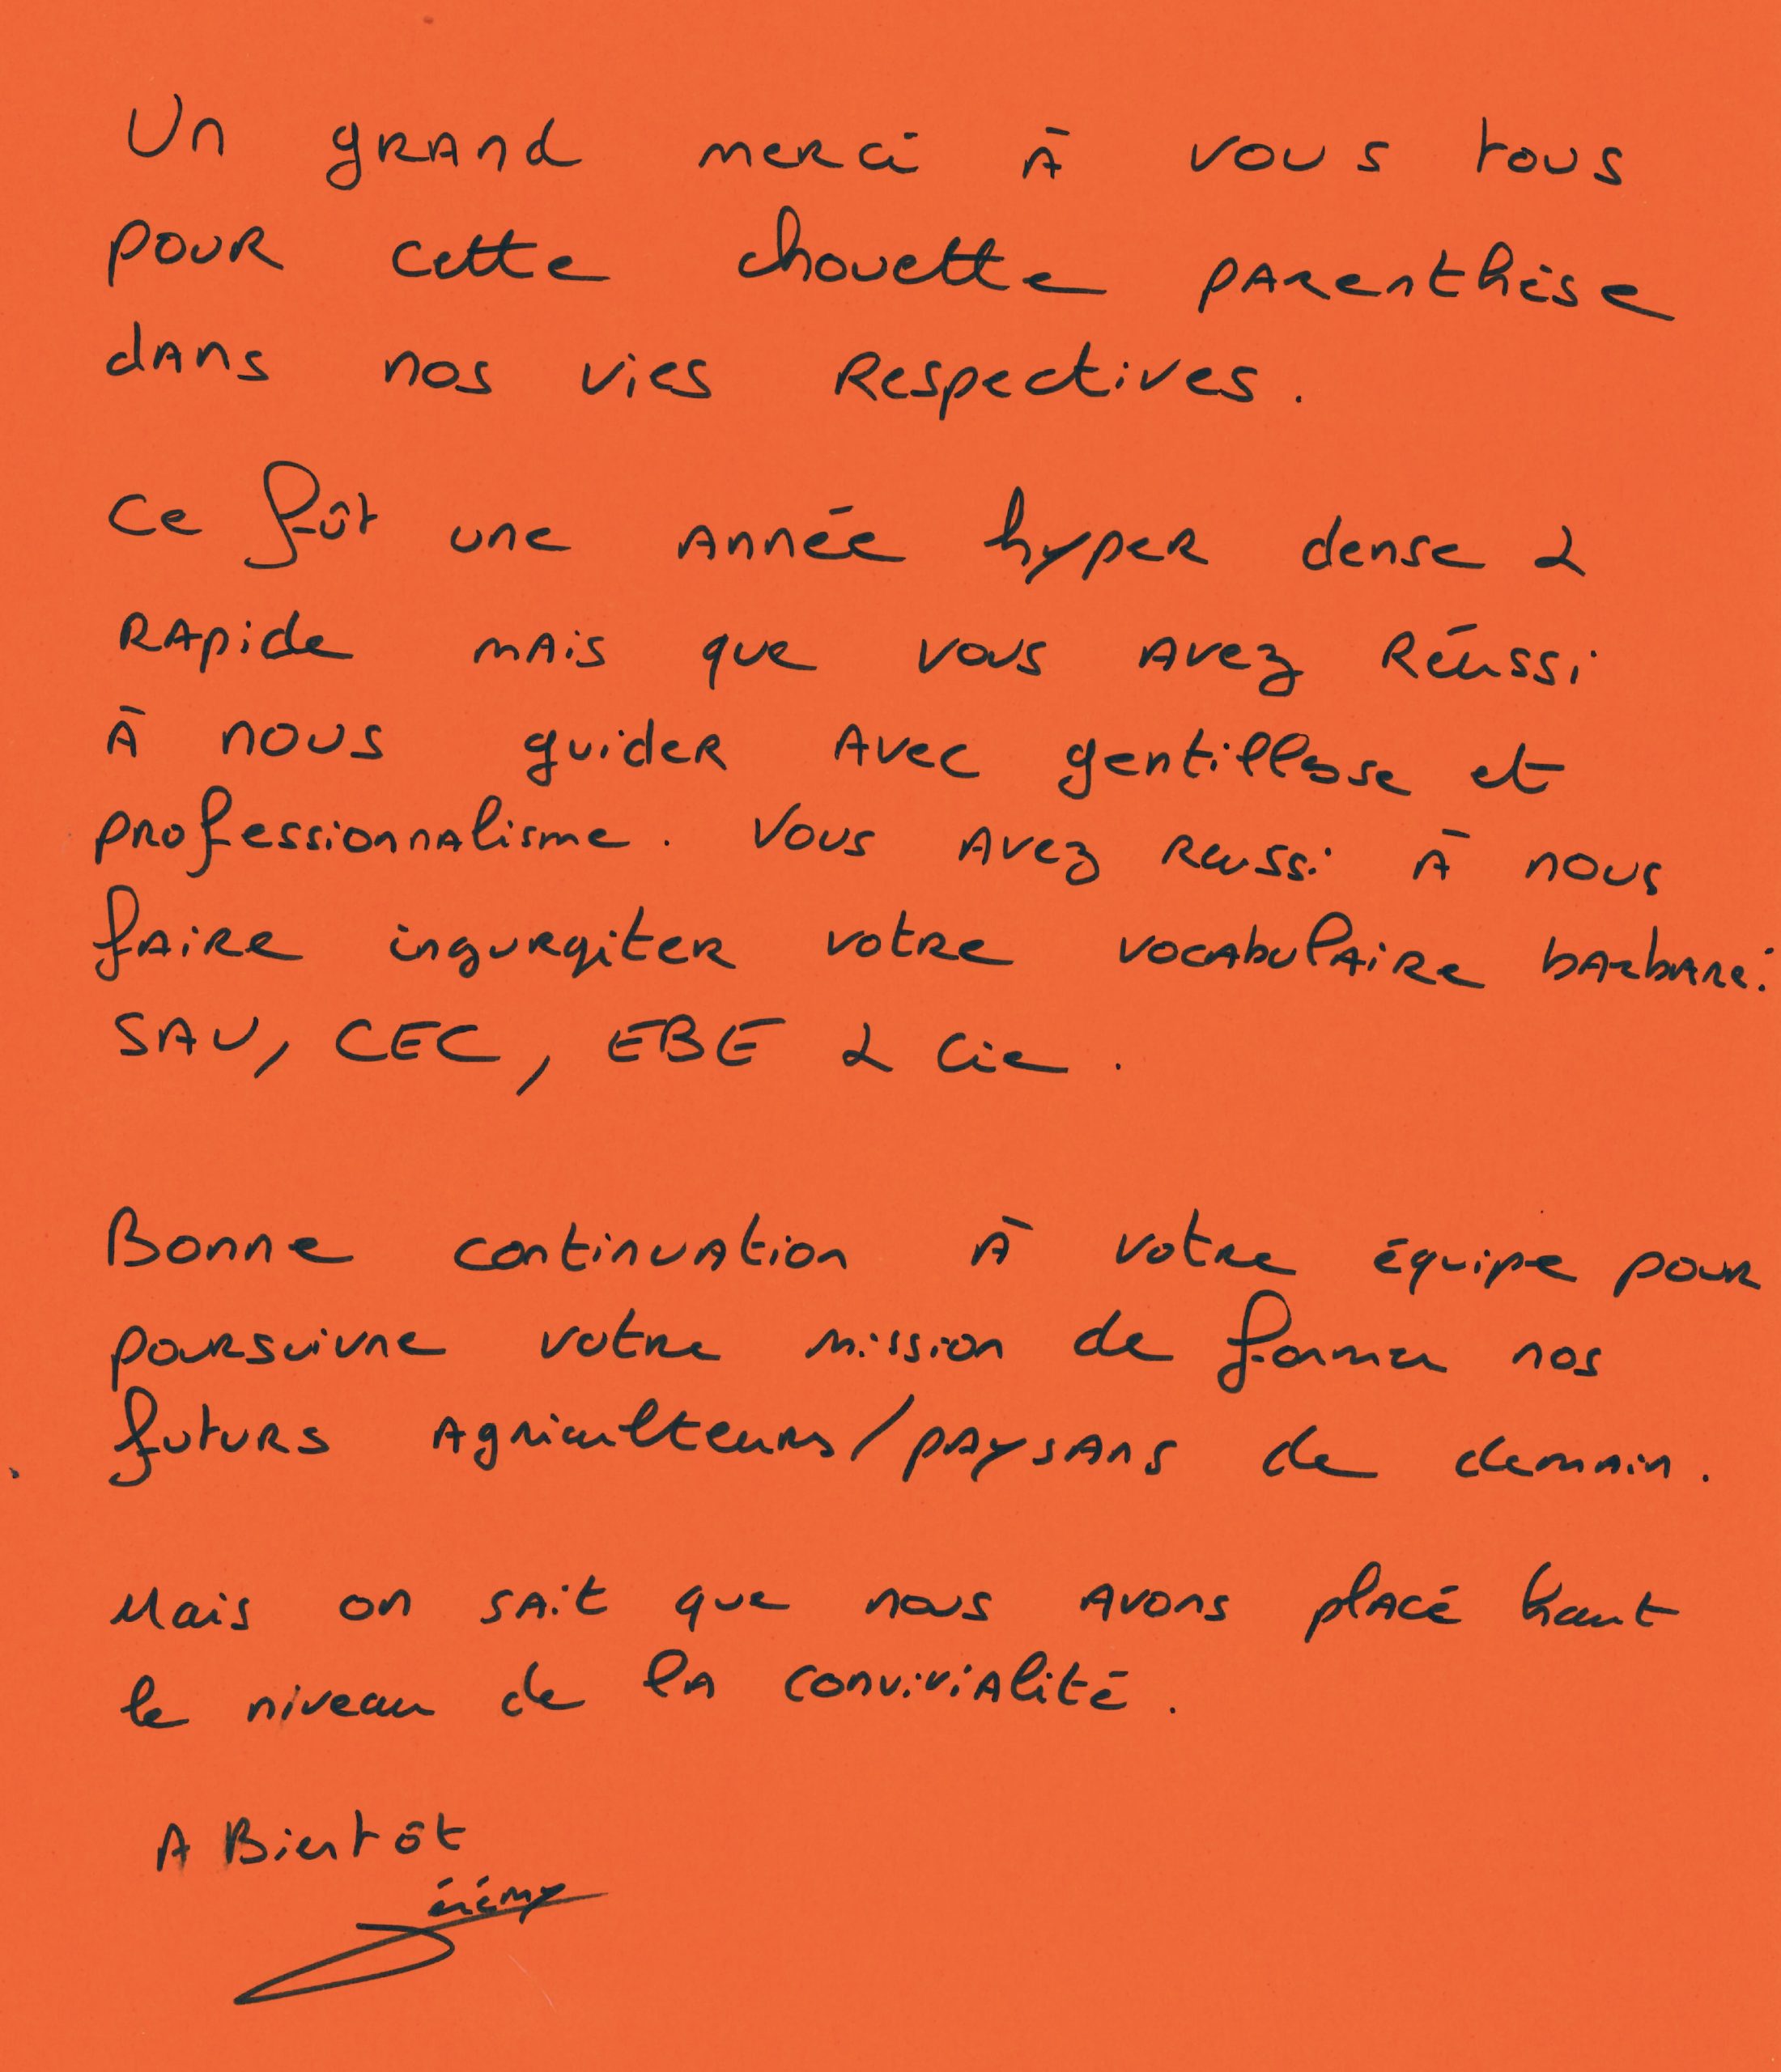 Un grand merci à vous tous
pour cette chouette parenthèse
dans nos vies respectives.
Ce fût une année hyper dense &
rapide mais que vous avez réussi
à nous guider avec gentillesse et
professionnalisme. Vous avez reussi à nous
faire ingurgiter votre vocabulaire barbare:
SAU, CEC, EBE & Cie.
Bonne continuation à votre équipe pour
poursuivre votre mission de former nos
futurs agriculteurs/paysans de demain.
Mais on sait que nous avons placé haut
le niveau de la convivialité.
A Bientôt
Jérémy